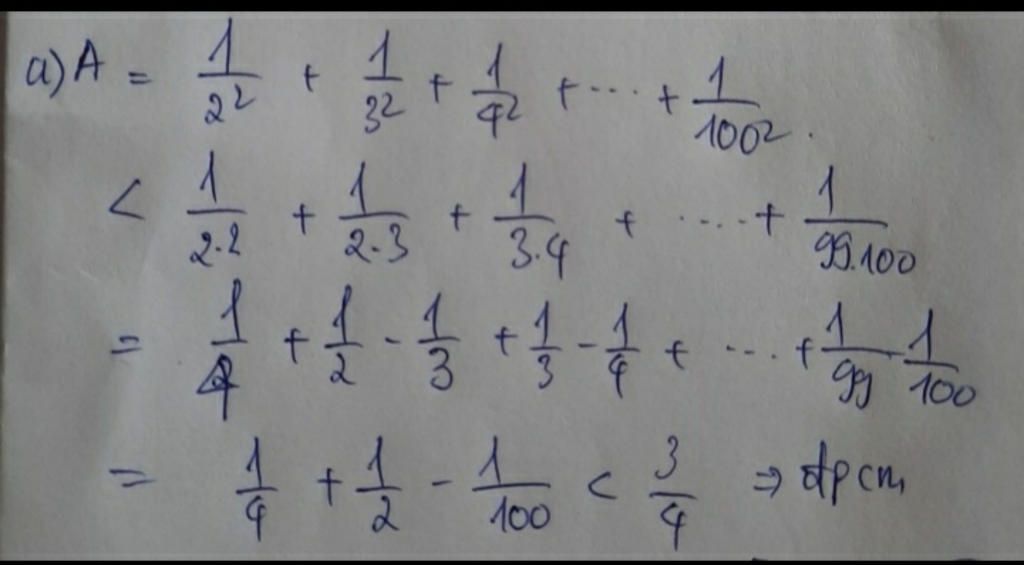 a) A = 1/2² + 1/3² + 1/4² + ... + 1/100².
< 1/2.2 + 1/2.3 + 1/3.4 + ..... + 1/99.100
= 1/4 + 1/2 - 1/3 + 1/3 - 1/4 + ... + 1/99 - 1/100
= 1/4 + 1/2 - 1/100 < 3/4 ⇒ đpcm